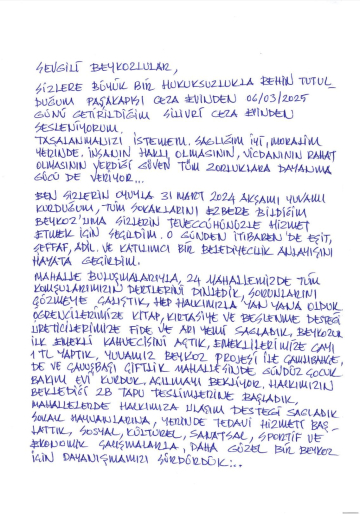 SEVGİLİ BEYKOZLULAR,
SİZLERE BÜYÜK BİR HUKUKSUZLUKLA REHİN TUTUL-
DUĞUM PAŞAKAPISI CEZA EVİNDEN 06/03/2025
GÜNÜ GETİRİLDİĞİM SİLİVRİ CEZA EVİNDEN
SESLENİYORUM.
TASALANMANIZI İSTEMEM. SAĞLIĞIM İYİ, MORALİM
YERİNDE. İNSANIN HAKLI OLMASININ, VİCDANININ RAHAT
OLMASININ VERDİĞİ GÜVEN TÜM ZORLUKLARA DAYANMA
GÜCÜ DE VERİYOR...
BEN SİZLERİN OYUYLA 31 MART 2024 AKŞAMI YUVAMI
KURDUĞUM, TÜM SOKAKLARINI EZBERE BİLDİĞİM
BEYKOZ'UMA SİZLERİN TEVECCÜHÜNÜZLE HİZMET
ETMEK İÇİN SEÇİLDİM. O GÜNDEN İTİBAREN DE EŞİT,
ŞEFFAF, ADİL VE KATILIMCI BİR BELEDİYECİLİK ANLAYIŞINI
HAYATA GEÇİRDİM.
MAHALLE BULUŞMALARIYLA, 24 MAHALLEMİZDE TÜM
KOMŞULARIMIZIN DERTLERİNİ DİNLEDİK, SORUNLARINI
ÇÖZMEYE ÇALIŞTIK, HEP HALKIMIZLA YAN YANA OLDUK.
ÖĞRENCİLERİMİZE KİTAP, KIRTASİYE VE BESLENME DESTEĞİ
ÜRETİCİLERİMİZE FİDE VE ARI YEMİ SAĞLADIK, BEYKOZUN
İLK EMEKLİ KAHVECİSİNİ AÇTIK, EMEKLİLERİMİZE ÇAYI
1 TL YAPTIK, YUVAMIZ BEYKOZ PROJESİ İLE ÇAMLIBAHÇE,
DE VE ÇAVUŞBAŞI ÇİFTLİK MAHALLESİNDE GÜNDÜZ ÇOCUK
BAKIM EVİ KURDUK. AÇILMAYI BEKLİYOR. HALKIMIZIN
BEKLEDİĞİ 2B TAPU TESLİMLERİNE BAŞLADIK,
MAHALLELERDE HALKIMIZA ULAŞIM DESTEĞİ SAĞLADIK
SOKAK HAYVANLARINA, YERİNDE TEDAVİ HİZMETİ BAŞ-
LATTIK, SOSYAL, KÜLTÜREL, SANATSAL, SPORTİF VE
EKONOMİK ÇALIŞMALARLA, DAHA GÜZEL BİR BEYKOZ
İÇİN DAYANIŞMAMIZI SÜRDÜRDÜK...